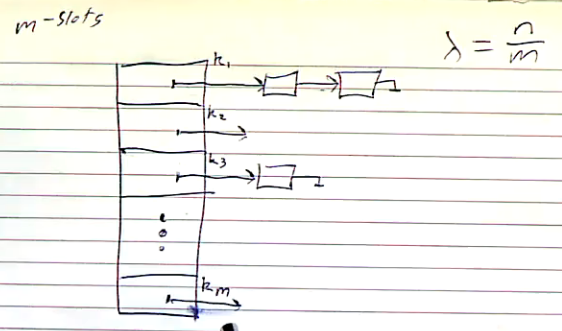 m-slots
λ = n/m
k1
k2
k3
km